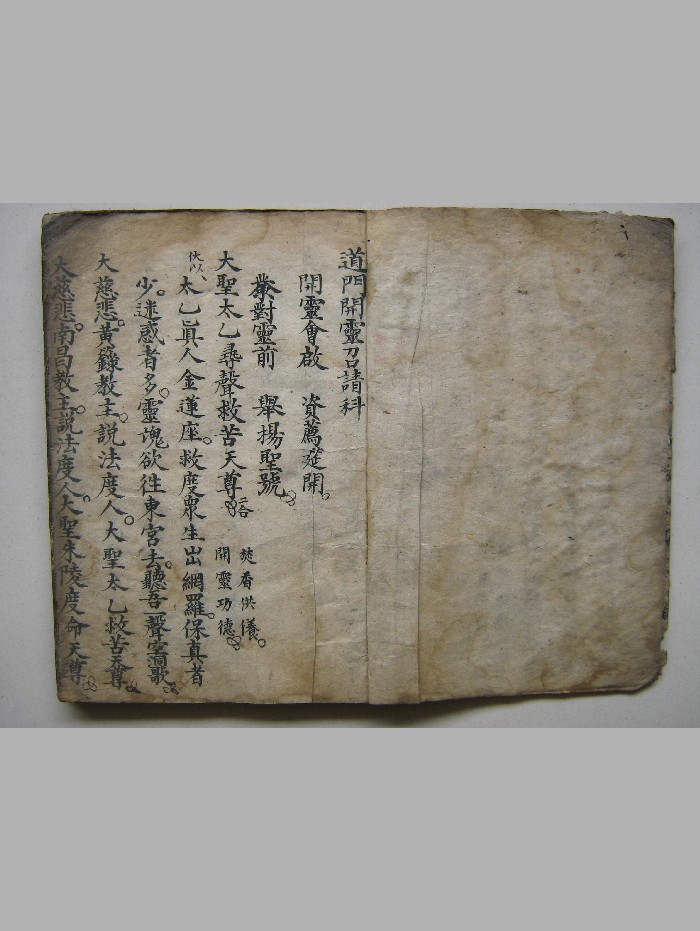 道門開靈召請科
開靈會啟　資薦筵開。
對靈前　舉揚聖號。
大聖太乙尋聲救苦天尊。二合
焚香供養。
開靈功德。
伏以、太乙真人金蓮座。救度眾生出網羅。保真者
少。迷惑者多。靈魂欲徃東宮去。聽吾一聲空洞歌
大慈悲。黃籙教主。說法度人。大聖太乙救苦天尊
大慈悲。南昌教主。說法度人。大聖朱陵度命天尊